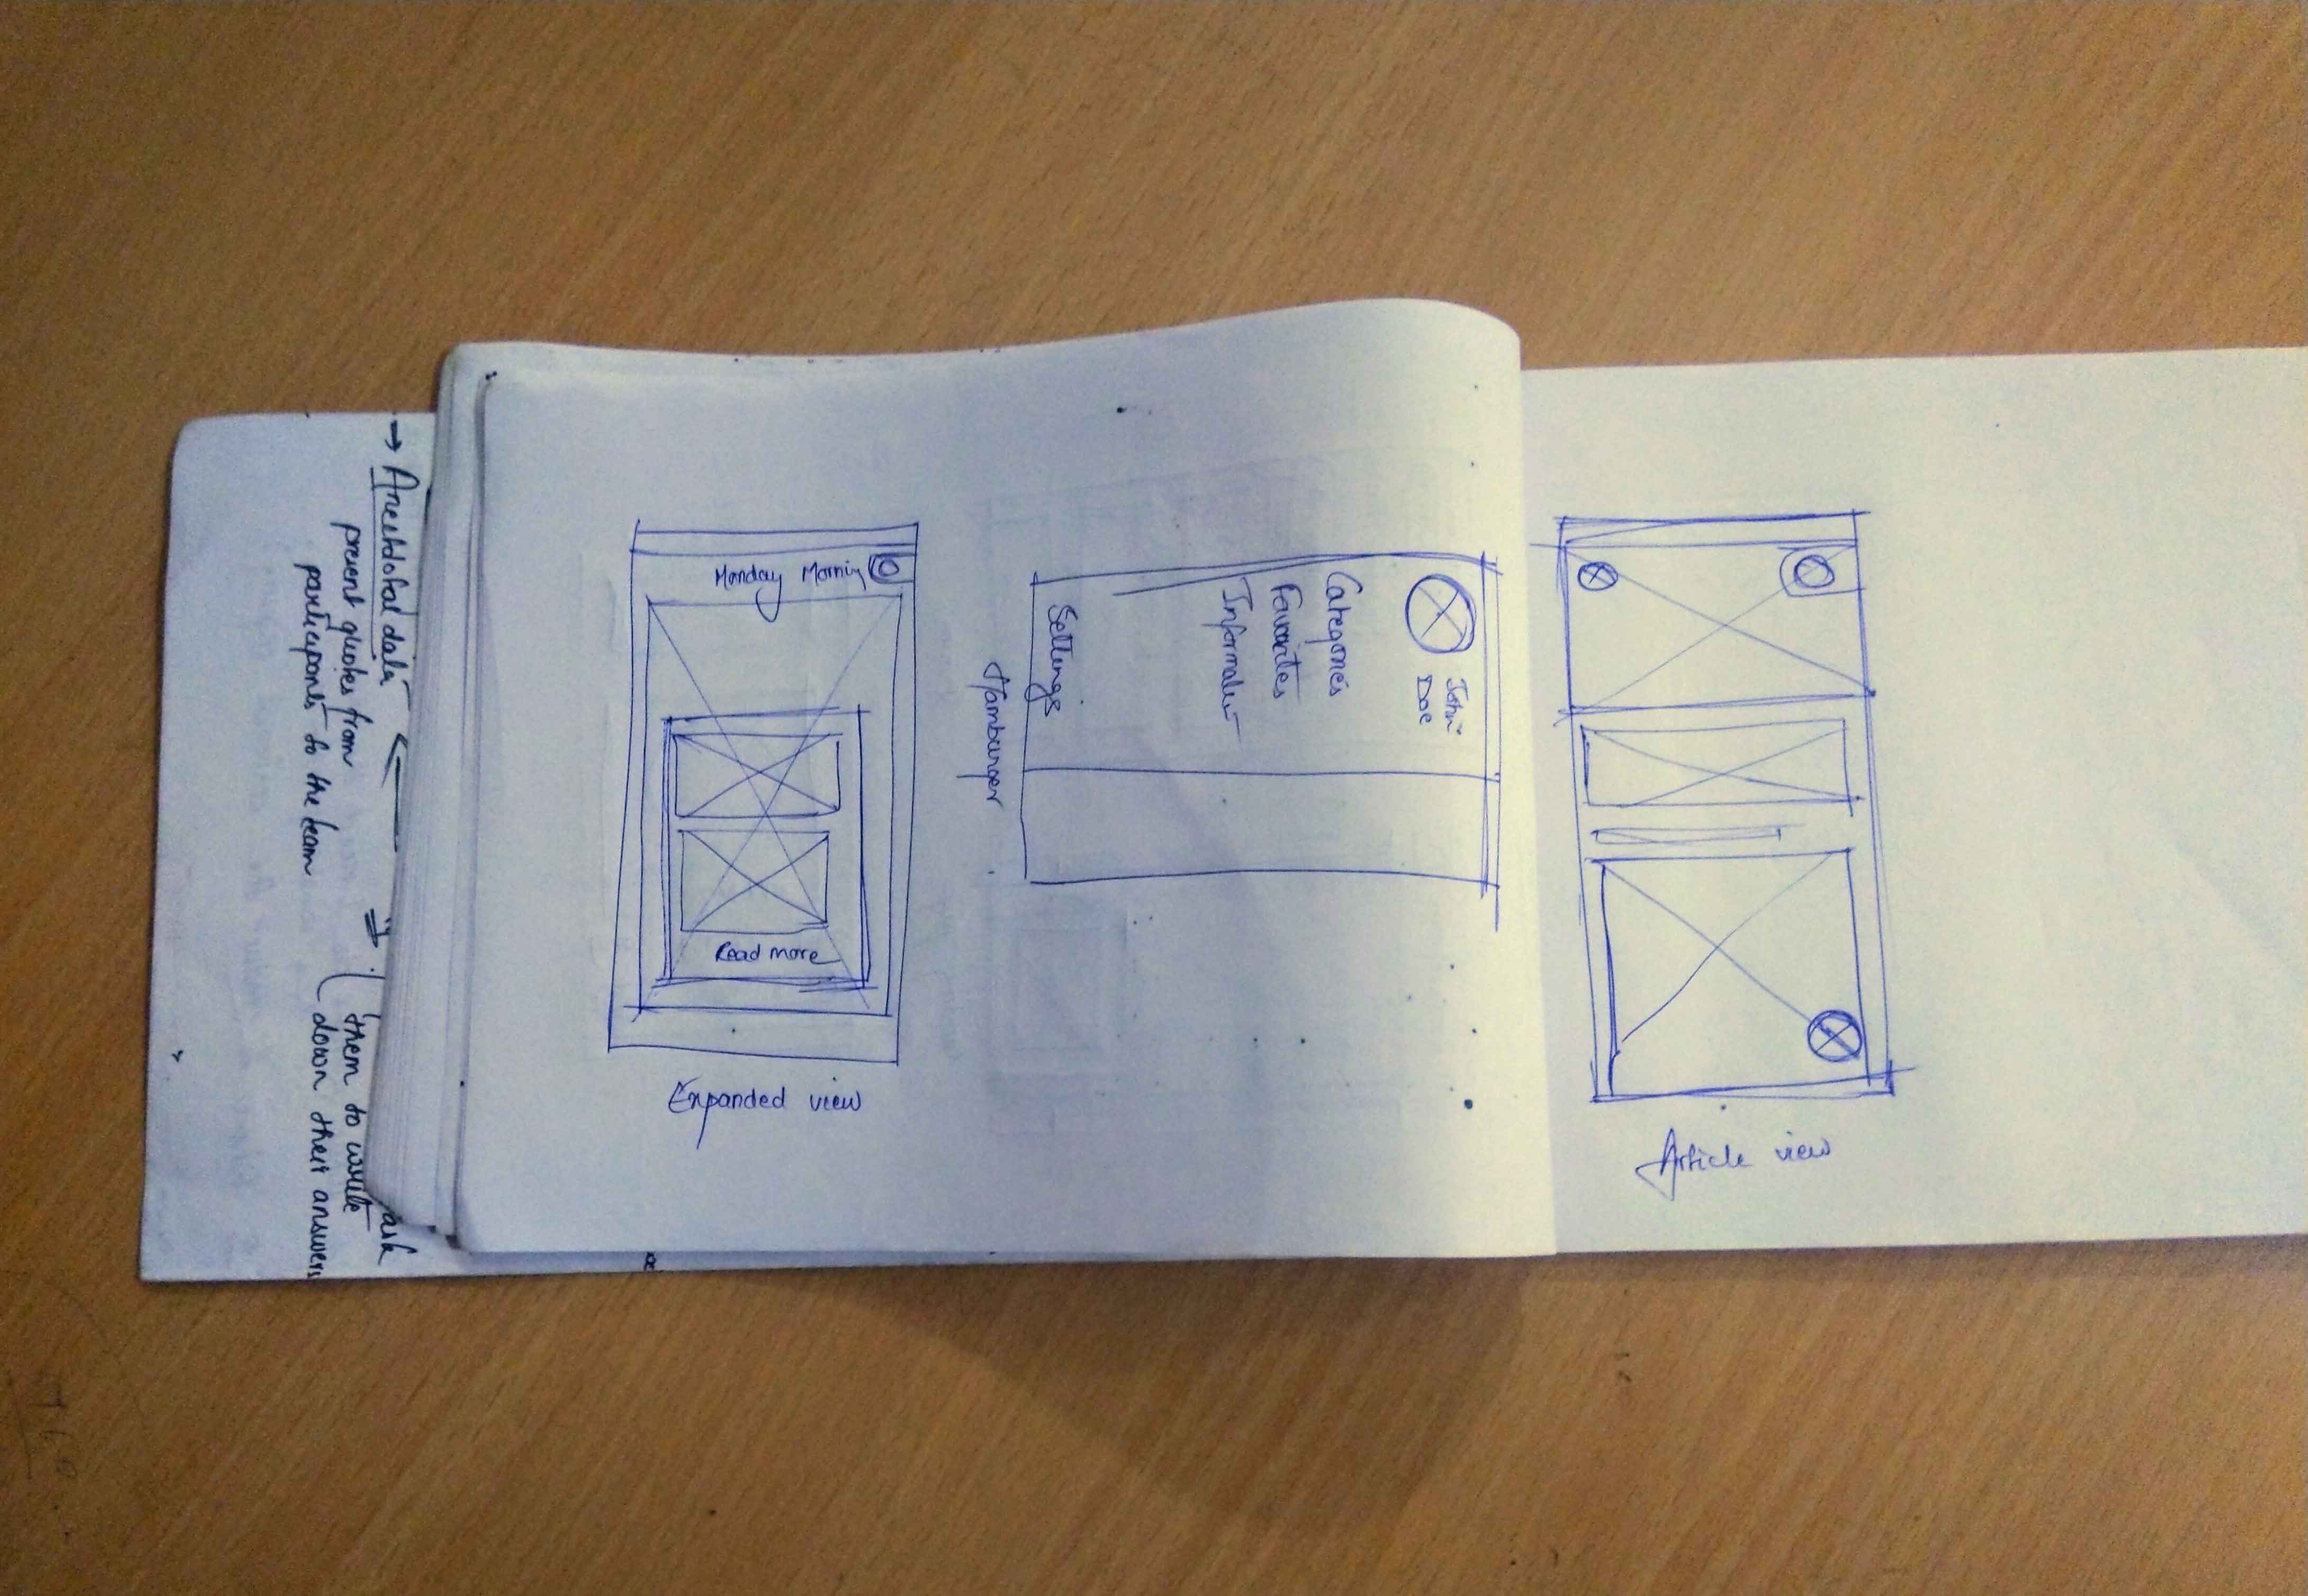 → Anecdotal data
present quotes from
participants to the team
ask
them to write
down their answers
Monday Morning
Read more
Expanded view
John
Doe
Categories
Favourites
Settings
Hamburger
Article view